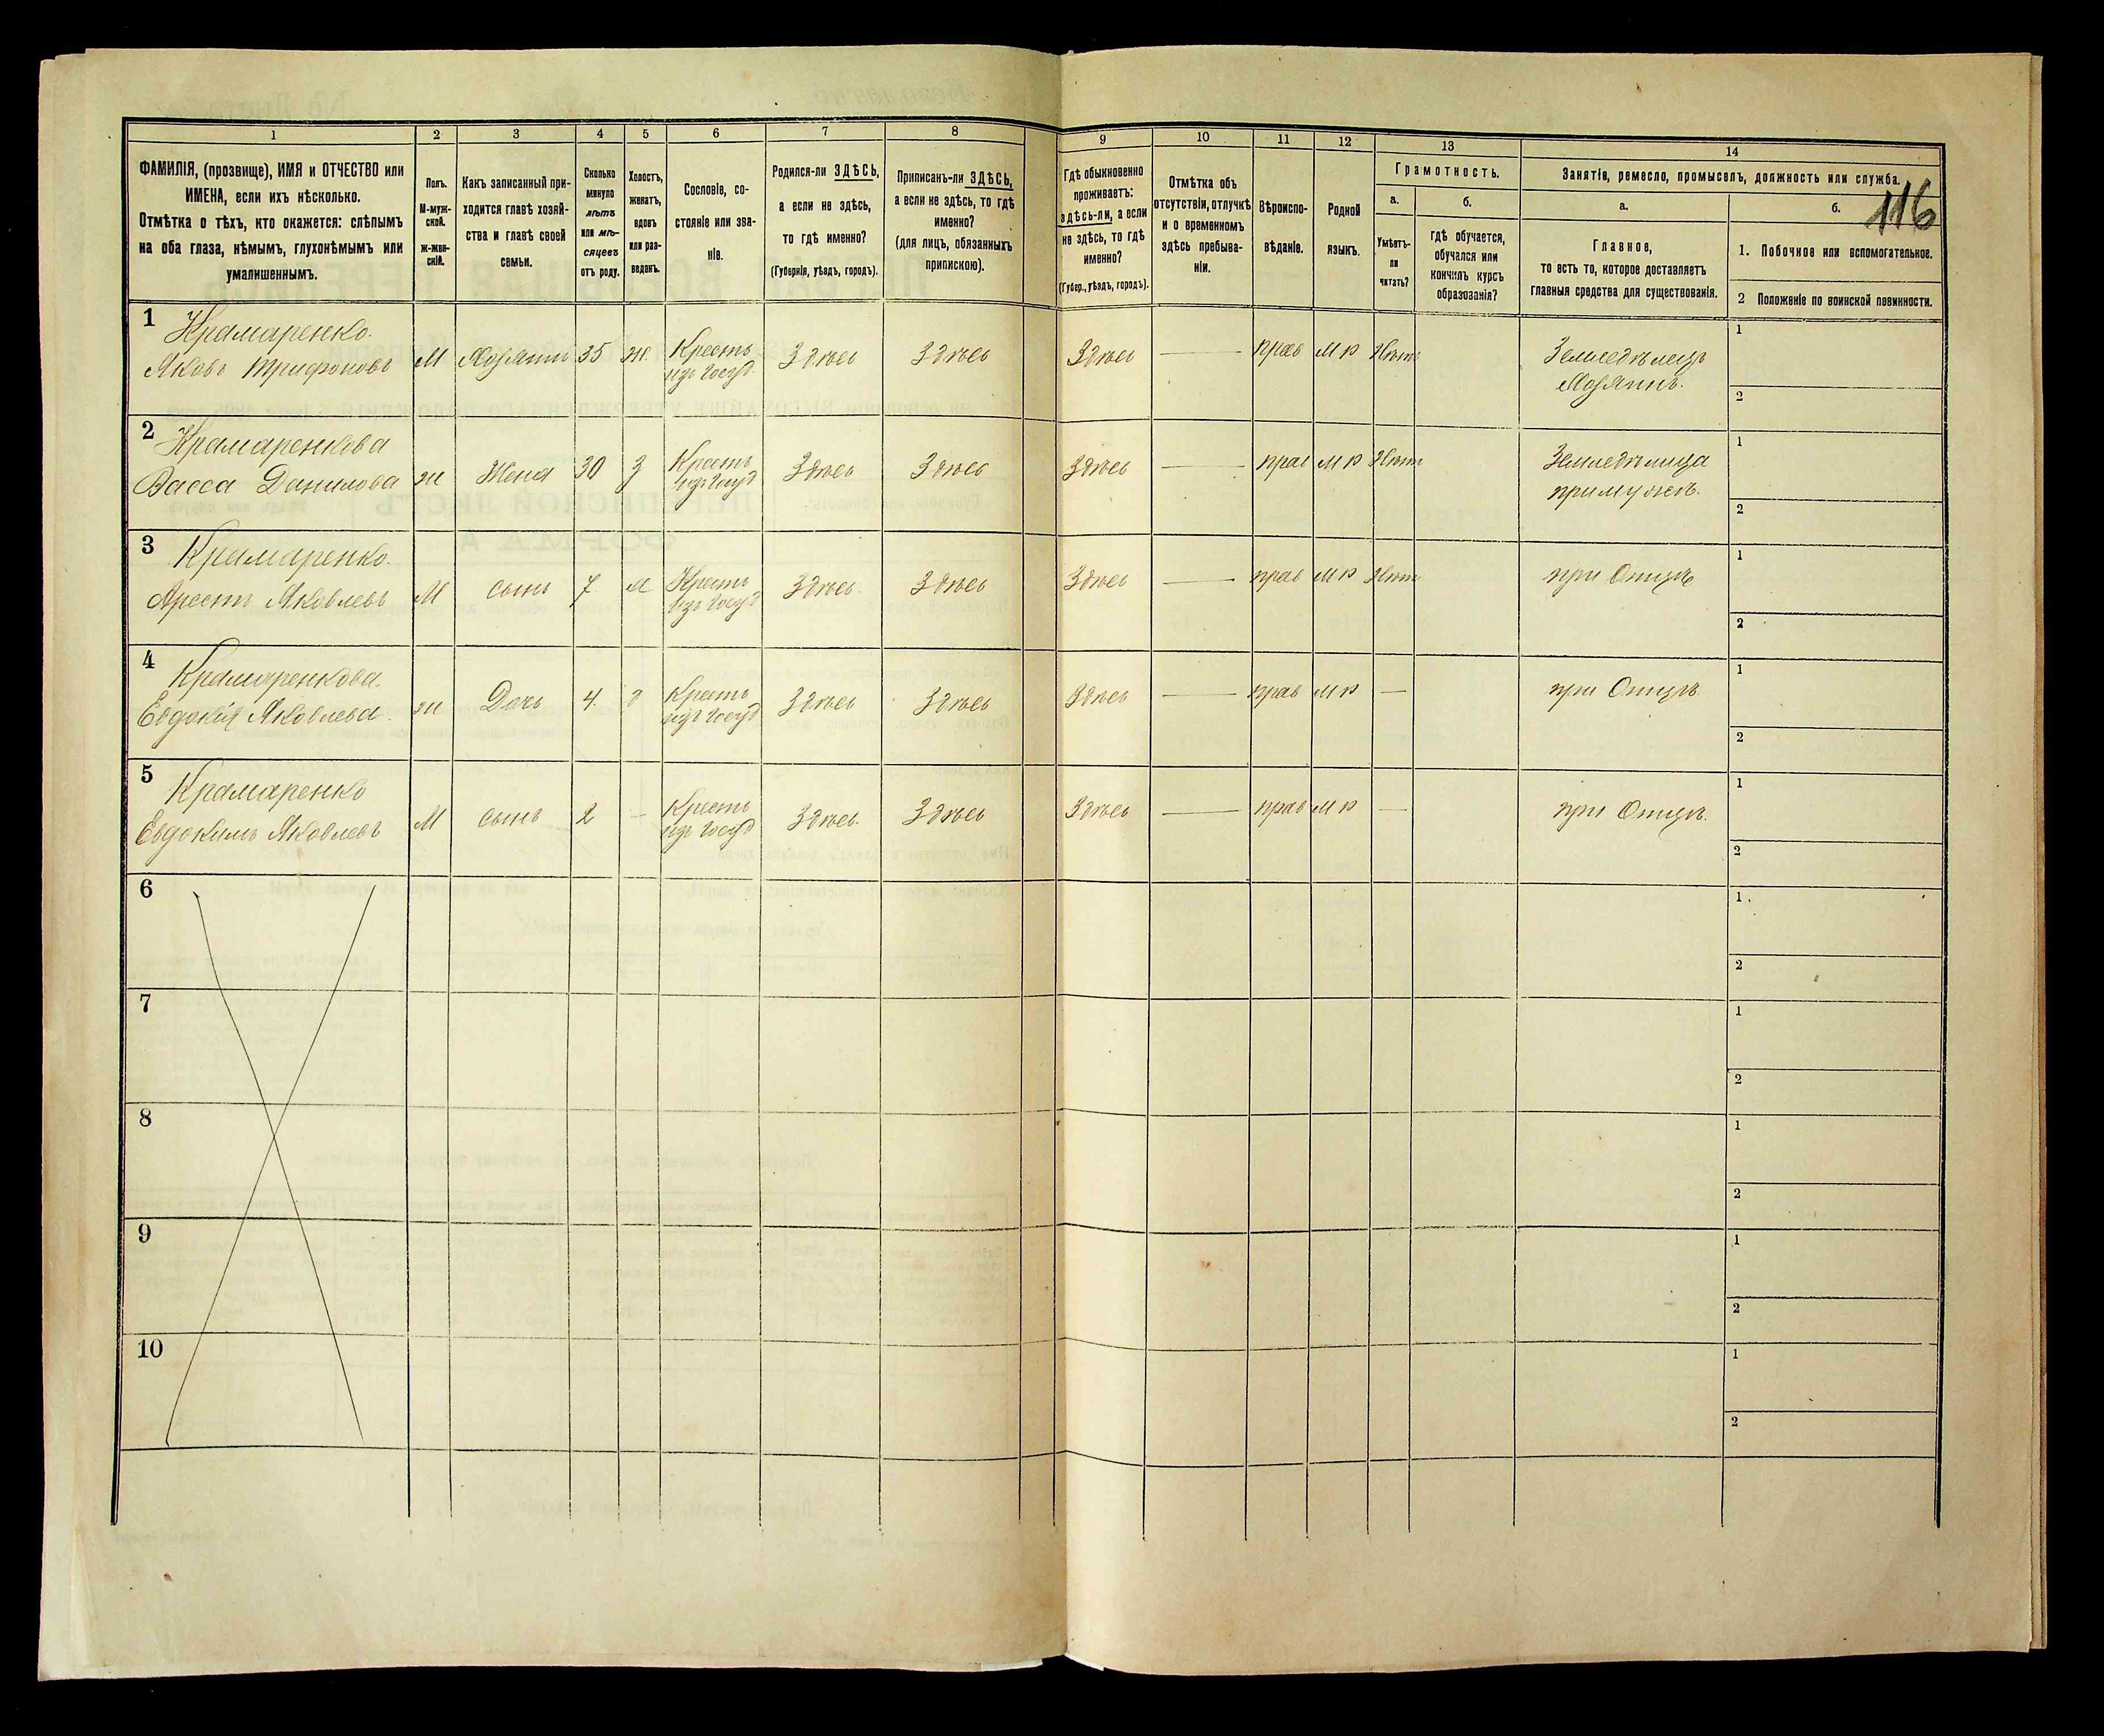 1
2
3
4
5
6
7
8
9
10
11
12
13
14
ФАМИЛІЯ, (прозвище), ИМЯ и ОТЧЕСТВО или
ИМЕНА, если ихъ нѣсколько.
Отмѣтка о тѣхъ, кто окажется: слѣпымъ
на оба глаза, нѣмымъ, глухонѣмымъ или
умалишеннымъ.
Полъ.
М-муж-
ской.
Ж-жен-
скій.
Какъ записанный при-
ходится главѣ хозяй-
ства и главѣ своей
семьи.
Сколько
минуло
лѣтъ
или мѣ-
сяцевъ
отъ роду.
Холостъ,
женатъ,
вдовъ
или раз-
веденъ.
Сословіе, со-
стояніе или зва-
ніе.
Родился-ли ЗДѢСЬ,
а если не здѣсь,
то гдѣ именно?
(Губернія, уѣздъ, городъ).
Приписанъ-ли ЗДѢСЬ,
а если не здѣсь, то гдѣ
именно?
(для лицъ, обязанныхъ
припискою).
Гдѣ обыкновенно
проживаетъ:
здѣсь-ли, а если
не здѣсь, то гдѣ
именно?
(Губер., уѣздъ, городъ).
Отмѣтка объ
отсутствіи, отлучкѣ
и о временномъ
здѣсь пребыва-
ніи.
Вѣроиспо-
вѣданіе.
Родной
языкъ.
Грамотность.
а.
Умѣетъ-
ли
читать?
б.
гдѣ обучается,
обучался или
кончилъ курсъ
образованія?
Занятіе, ремесло, промыселъ, должность или служба.
116
а.
Главное,
то есть то, которое доставляетъ
главныя средства для существованія.
б.
1. Побочное или вспомогательное.
2 Положеніе по воинской повинности.
1 Крамаренко.
Яковъ Трифоновъ М Хозяинъ 35 Ж. Кресть изъ Госуд. Здѣсь Здѣсь Здѣсь — прав М Р Нѣтъ Земледѣлецъ
Хозяинъ.
1
2
2 Крамаренкова
Васса Данилова ж Жена 30 З Кресть изъ Госуд Здѣсь Здѣсь Здѣсь — прав М Р Нѣтъ Земледѣлица
при мужѣ.
1
2
3 Крамаренко.
Арестъ Яковлевъ М сынъ 7 Кресть изъ Госуд Здѣсь Здѣсь Здѣсь — прав М Р Нѣтъ при Отцѣ
1
2
4 Крамаренкова.
Евдокія Яковлева. ж Дочь 4. Кресть изъ Госуд Здѣсь Здѣсь Здѣсь — прав М Р — при Отцѣ
1
2
5 Крамаренко
Евдокимъ Яковлевъ М сынъ 2 — Кресть изъ Госуд Здѣсь Здѣсь Здѣсь — прав М Р — при Отцѣ.
1
2
6
1
2
7
1
2
8
1
2
9
1
2
10
1
2